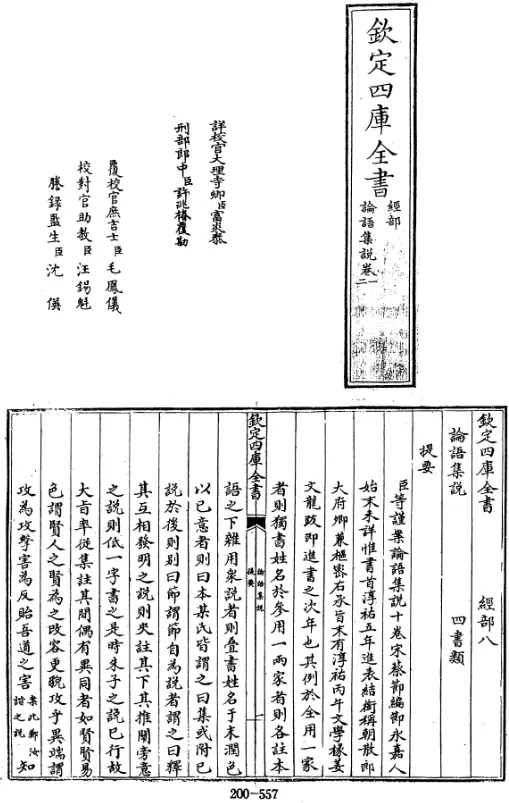 欽定四庫全書
經部
論語集説卷一
二
詳校官大理寺卿臣富炎泰
刑部郎中臣許兆椿覆勘
覆校官庶吉士臣毛鳳儀
校對官助教臣汪錫魁
謄録監生臣沈
欽定四庫全書
經部八
論語集説
四書類
提要
臣等謹案論語集説十卷宋蔡節編節永嘉人
始末未詳惟書首淳祐五年進表結銜稱朝散郎
大府卿兼樞密右承旨末有淳祐丙午文學掾姜
文龍䟦即進書之次年也其例於全用一家
者則獨書姓名於參用一兩家者則各註本
欽定四庫全書
論語集説
提要
一
語之下雜用衆説者則叠書姓名于末潤色
以已意者則曰本某氏皆謂之曰集或附已
説於後則别曰節謂節自為説者謂之曰釋
其互相發明之説則夾註其下其推闡旁意
之説則低一字書之是時朱子之説已行故
大旨率從集註其間偶有異同者如賢賢易
色謂賢人之賢為之改容更貌攻乎異端謂
攻為攻擊害為反貽吾道之害
案此鄭汝
諧之説
知
200-557